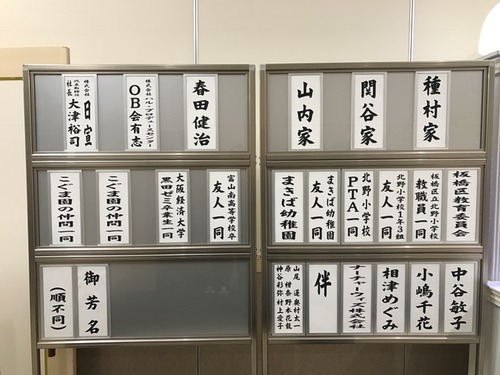 種村家
関谷家
山内家
春田健治
株式会社ハル・プロデュースセンター
OB会有志
株式会社
日宣
代表取締役
社長 大津裕司
板橋区教育委員会
板橋区立北野小学校
教職員一同
北野小学校1年3組
友人一同
北野小学校
PTA一同
まきば幼稚園
友人一同
まきば幼稚園
富山南高等学校卒
友人一同
大阪経済大学
黒田ゼミ卒業生一同
こぐま園の仲間一同
こぐま園の仲間一同
中谷敏子
小嶋千花
相津めぐみ
ナーチャーウィズ株式会社
伴
山尾 蓮 奥村太一
原
神谷彩弥 村上愛子
御芳名
(順不同)